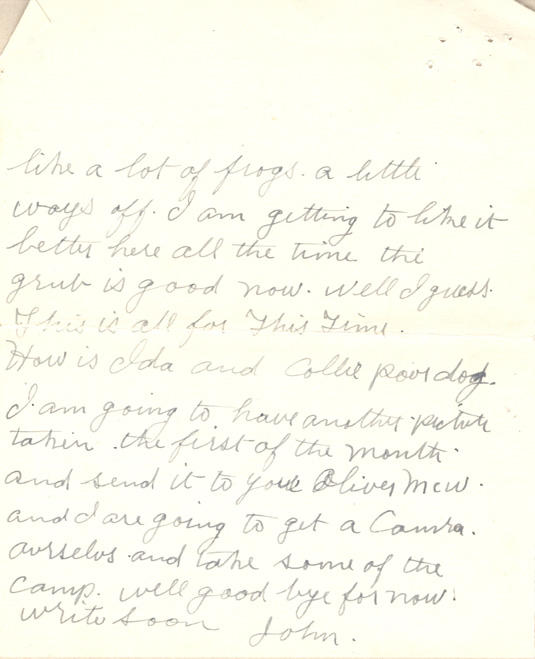 like a lot of frogs. a little
ways off. I am getting to like it
better here all the time the
grub is good now. well I guess.
This is all for This Time.
How is Ida and Collie poor dog.
I am going to have another picture
taken the first of the month.
and send it to you Oliver McW.
and I are going to get a Camra.
ourselvs and take some of the
camp. well good bye for now.
write soon John.